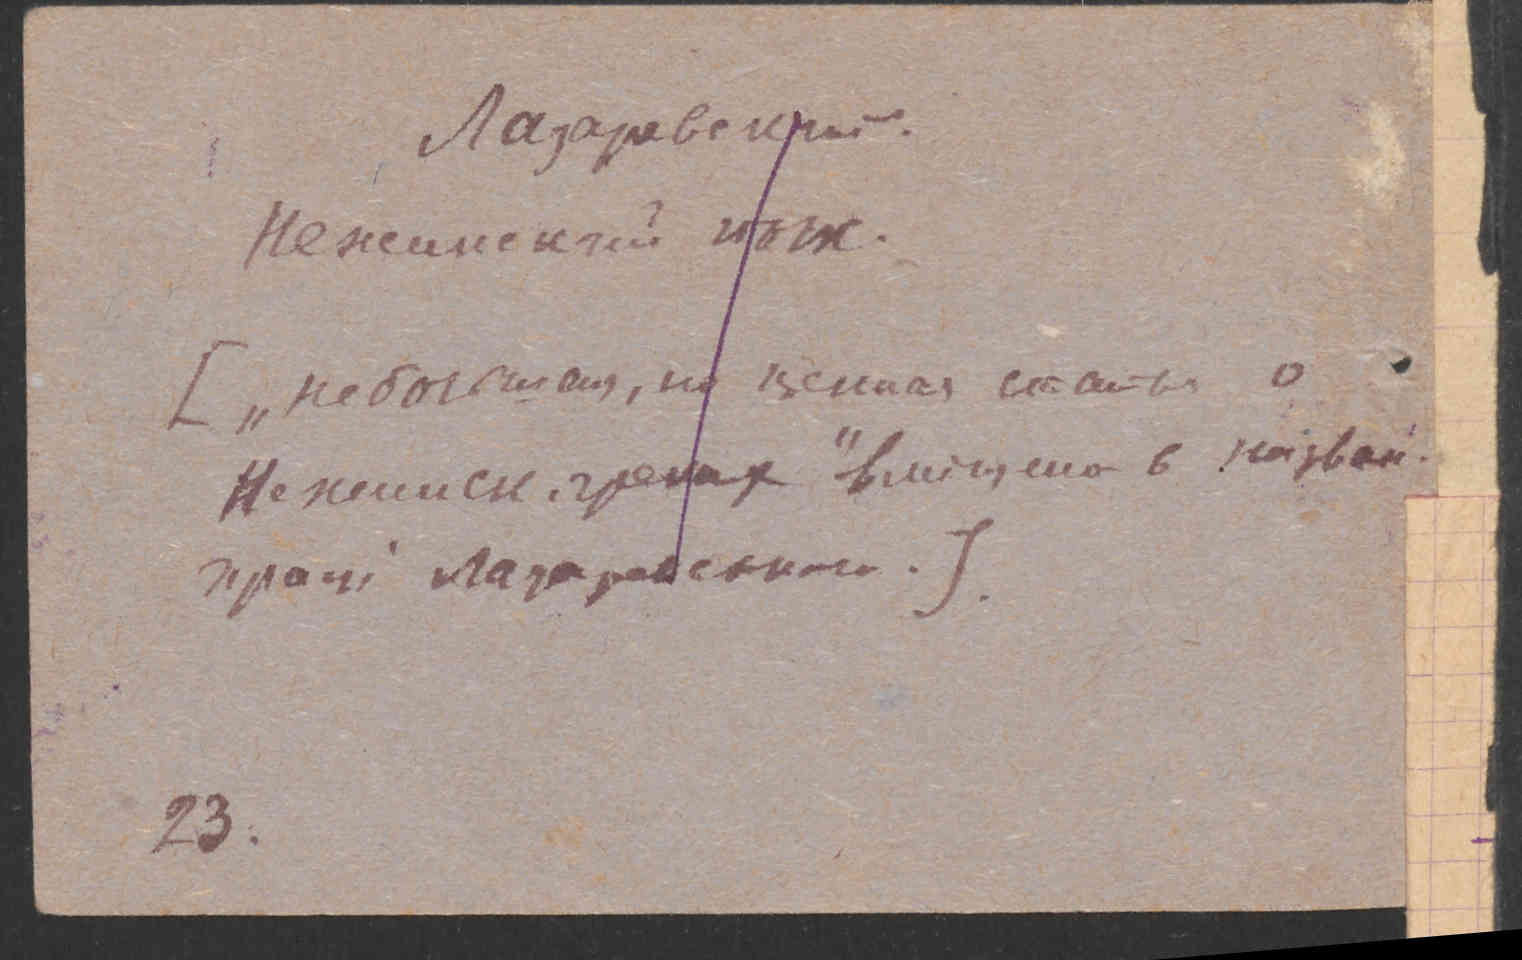 Лазаревский.
Нежинский полк.
[„небольшая, но ценная статья о
Нежинск. греках" вміщено в назван.
праці Лазаревского.].
23.